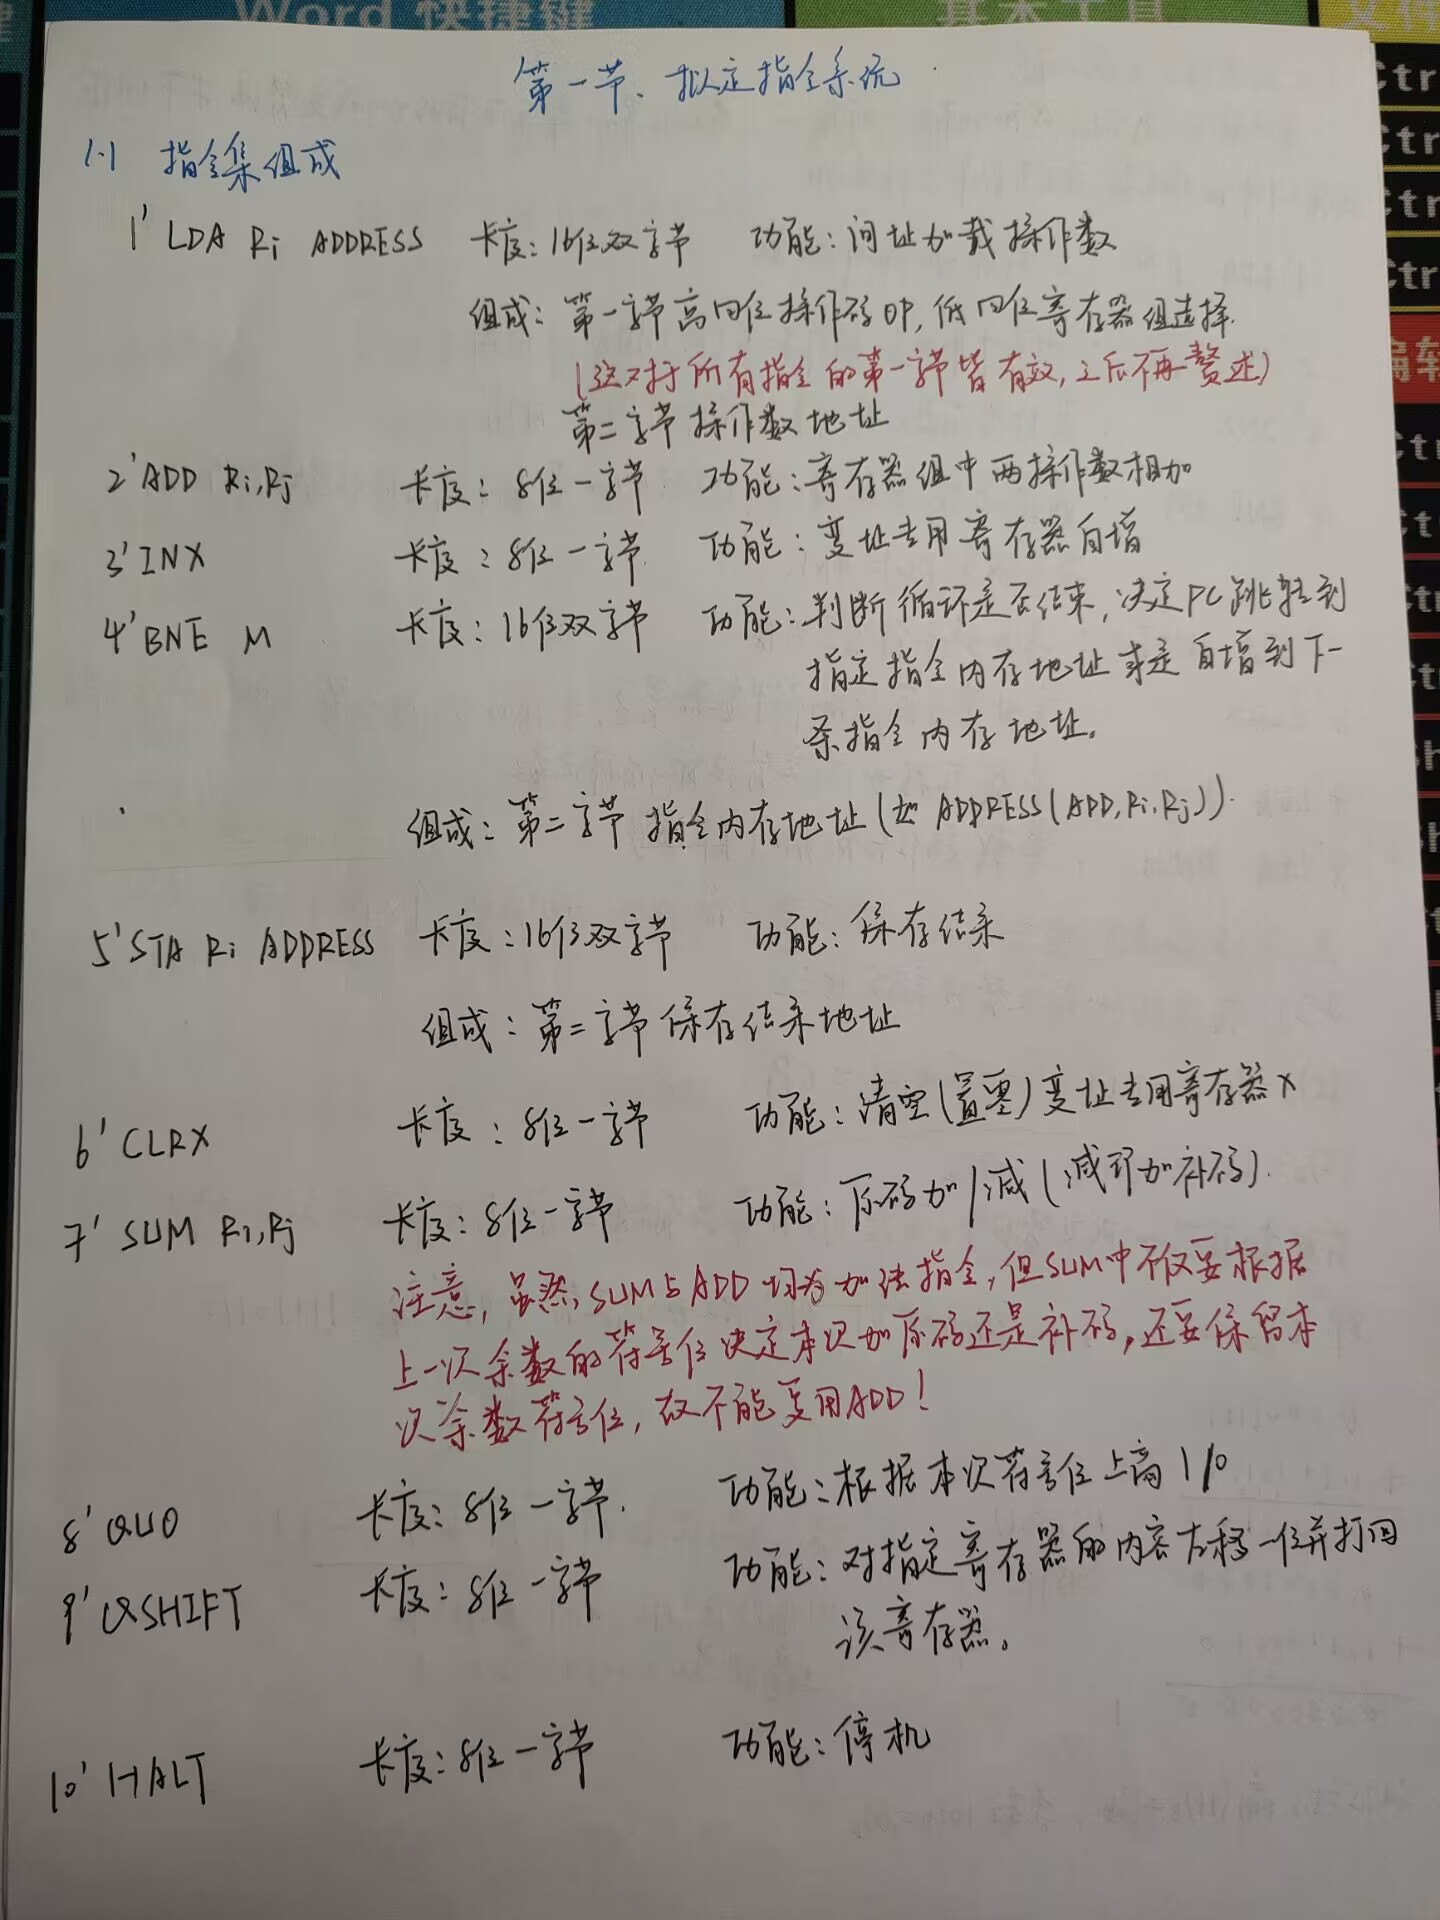 Word 快捷键
基本工具
文件
第一节、拟定指令系统
1.1 指令集组成
1' LDA Ri ADDRESS 长度：16位双字节 功能：间址加载操作数
组成：第一字节高四位操作码OP，低四位寄存器组选择.
(这对于所有指令的第一字节皆有效，之后不再赘述)
第二字节操作数地址
2' ADD Ri,Rj 长度：8位一字节 功能：寄存器组中两操作数相加
3' INX 长度：8位一字节. 功能：变址专用寄存器自增
4' BNE M 长度：16位双字节 功能：判断循环是否结束，决定PC跳转到
指定指令内存地址或是自增到下一
条指令内存地址。
组成：第二字节指令内存地址(如 ADDRESS(ADD,Ri,Rj)).
5' STA Ri ADDRESS 长度：16位双字节 功能：保存结果
组成：第二字节保存结果地址
6' CLRX 长度：8位一字节 功能：清空(置零)变址专用寄存器X
7' SUM Ri,Rj 长度：8位一字节 功能：原码加/减(减即加补码).
注意，虽然，SUM与ADD均为加法指令，但SUM中不仅要根据
上一次余数的符号位决定本次加原码还是补码，还要保留本
次余数符号位，故不能复用ADD！
8' QUO 长度：8位一字节. 功能：根据本次符号位上商1/0
9' QSHIFT 长度：8位一字节 功能：对指定寄存器的内容左移一位并打回
该寄存器。
10' HALT 长度：8位一字节 功能：停机
Ctr
Ctr
Ctr
Ctr
编辑
Ctr